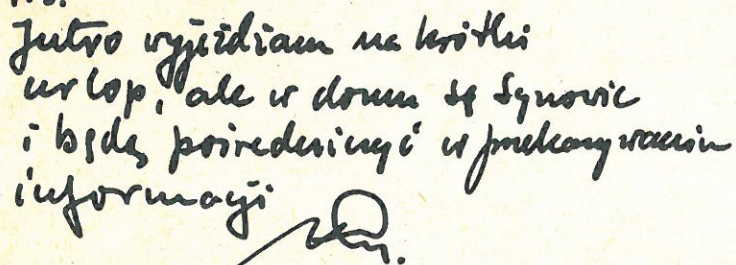 Jutro wyjeżdżam na krótki
urlop, ale w domu są synowie
i będą pośredniczyć w przekazywaniu
informacji